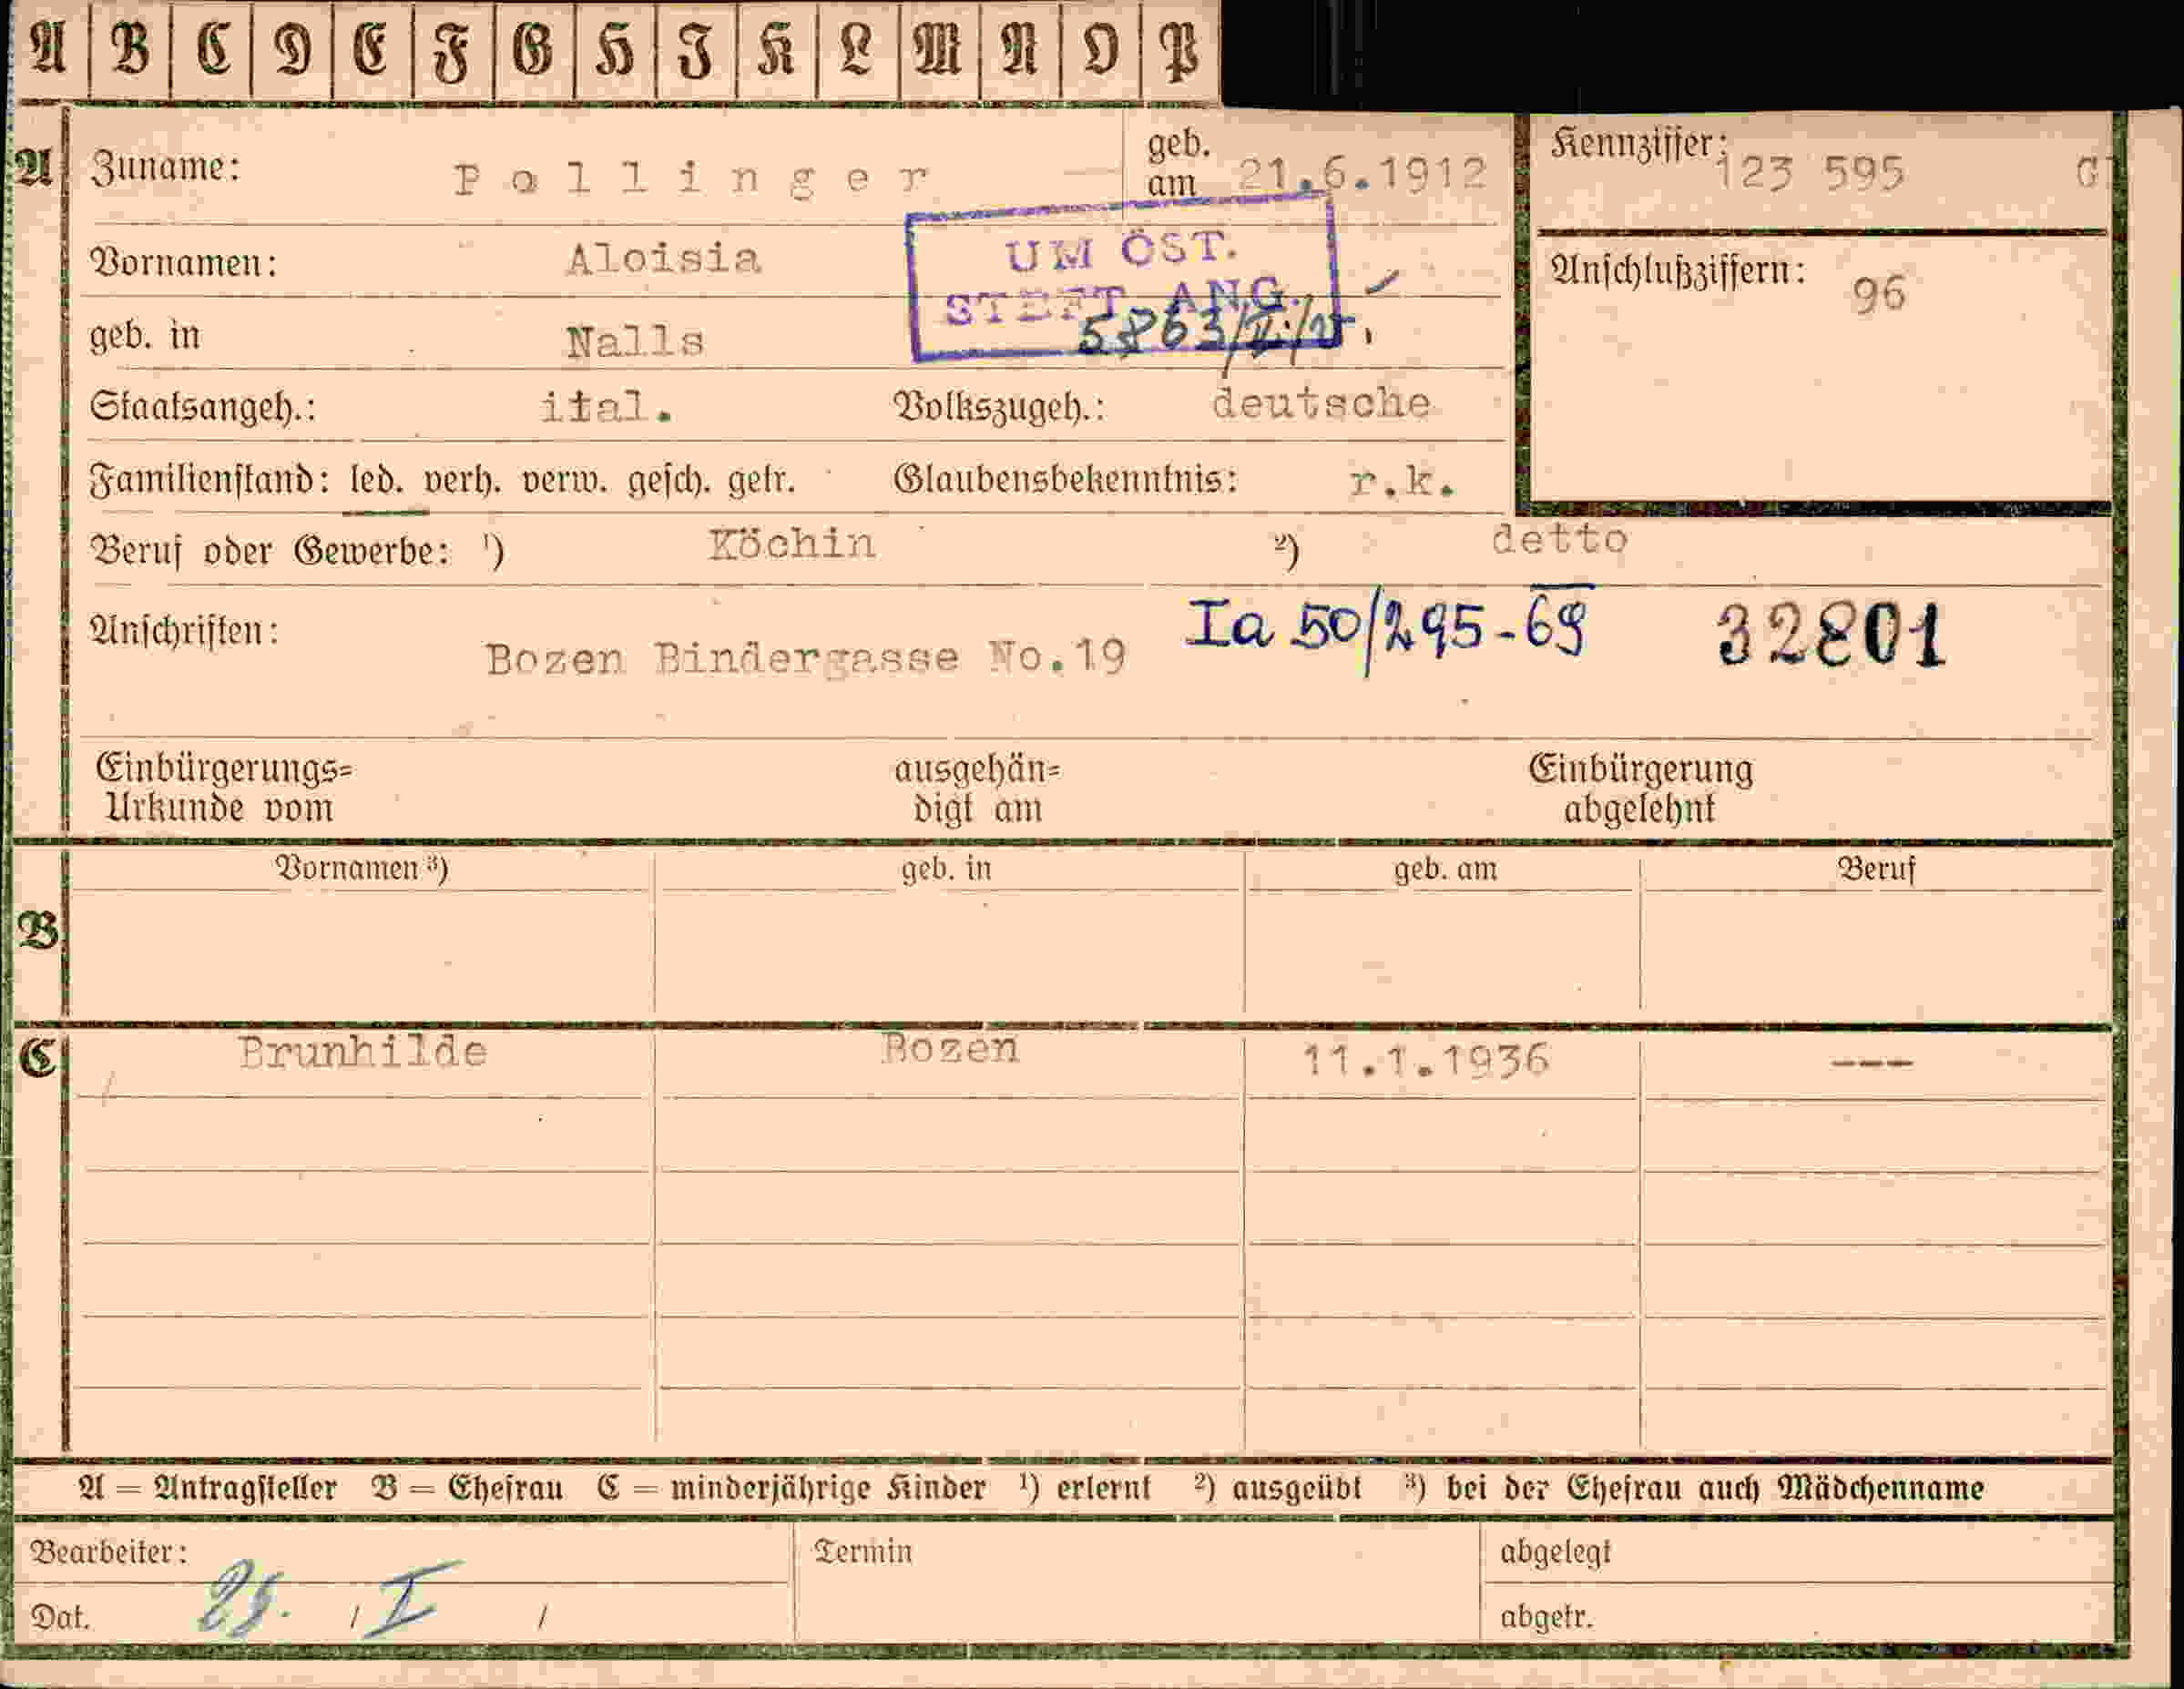 A B C D E F G H I K L M N O P
A Zuname: Pollinger geb. am 21.6.1912 Kennziffer: 123 595 G
Vornamen: Aloisia Anschlußziffern: 96
UM ÖST.
ST ANG.
geb. in Nalls 5863/II/
Staatsangeh.: ital. Volkszugeh.: deutsche
Familienstand: led. verh. verw. gesch. getr. Glaubensbekenntnis: r.k.
Beruf oder Gewerbe: ¹) Köchin ²) detto
Anschriften: Bozen Bindergasse No.19 Ia 50/295-69 32801
Einbürgerungs= ausgehän= Einbürgerung
Urkunde vom digt am abgelehnt
Vornamen ³) geb. in geb. am Beruf
B
C Brunhilde Bozen 11.1.1936 ---
A = Antragsteller B = Ehefrau C = minderjährige Kinder ¹) erlernt ²) ausgeübt ³) bei der Ehefrau auch Mädchenname
Bearbeiter: Termin abgelegt
Dat. / I / abgetr.